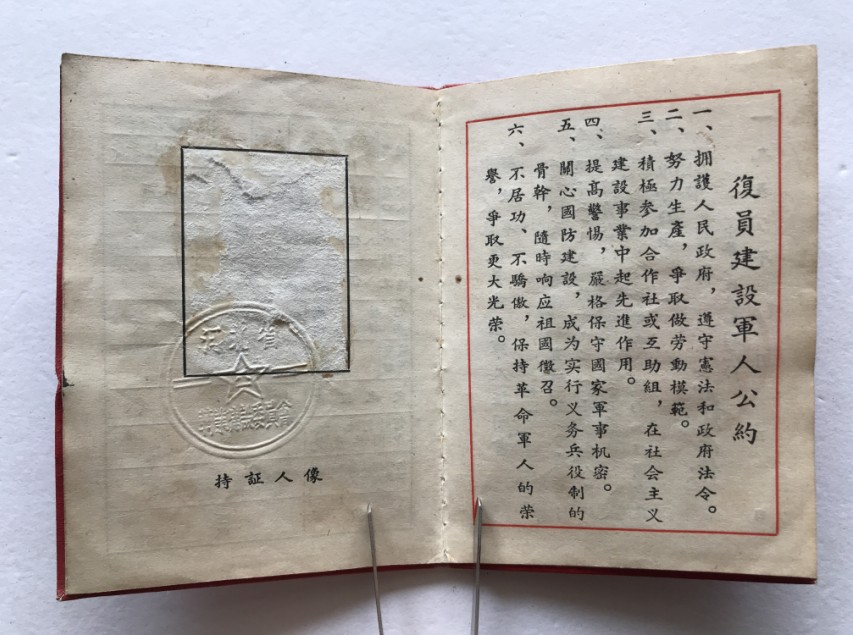 復員建設軍人公約
一、擁護人民政府，遵守憲法和政府法令。
二、努力生產，爭取做劳動模範。
三、積極参加合作社或互助組，在社会主义
建設事業中起先進作用。
四、提高警惕，嚴格保守國家軍事机密。
五、關心國防建設，成为实行义务兵役制的
骨幹，隨時响应祖國徵召。
六、不居功、不驕傲，保持革命軍人的荣
譽，爭取更大光荣。
河北省
持証人像